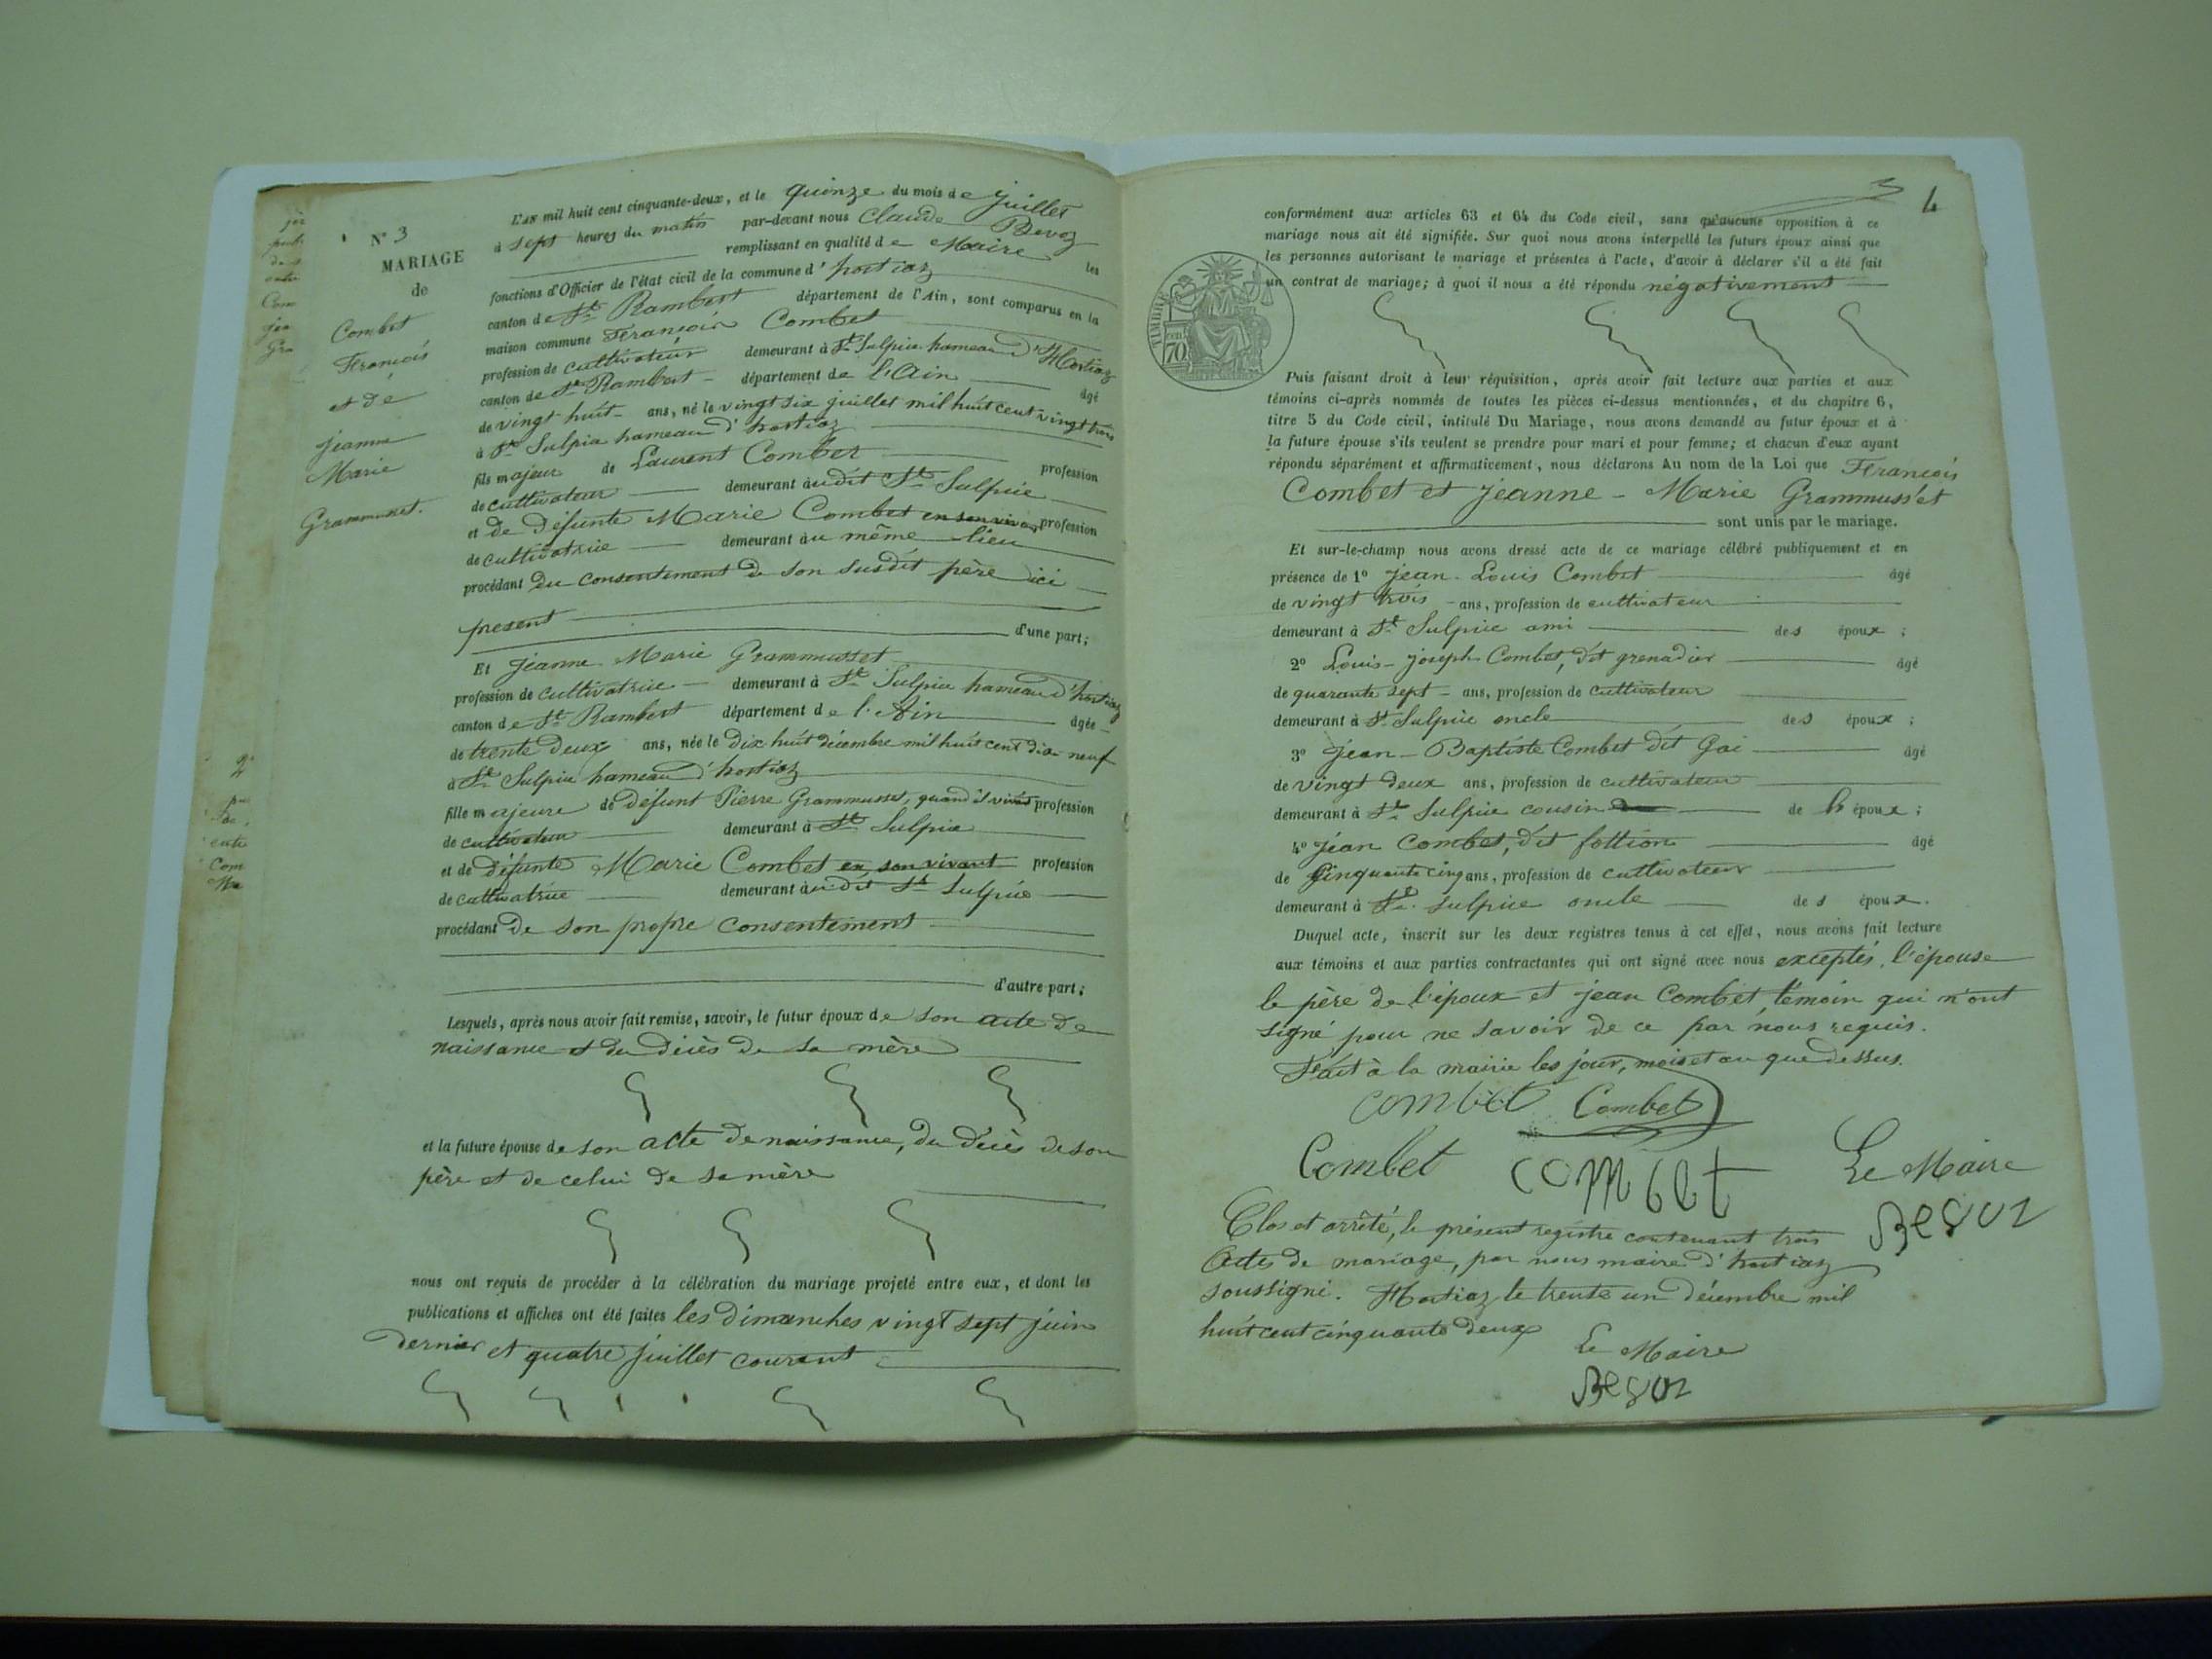 N° 3
MARIAGE
de
Combet
François
et de
Jeanne
Marie
Grammusset.
L'AN mil huit cent cinquante-deux, et le quinze du mois de juillet
à sept heures du matin par-devant nous Claude
remplissant en qualité de Maire les
fonctions d'Officier de l'état civil de la commune d'hostiaz
canton de St Rambert département de l'Ain, sont comparus en la
maison commune François Combet
profession de cultivateur demeurant à St Sulpice hameau d'Hostiaz
canton de St Rambert département de l'Ain âgé
de vingt huit ans, né le vingt six juillet mil huit cent vingt trois
à St Sulpice hameau d'hostiaz
fils majeur de Laurent Combet profession
de cultivateur demeurant audit St Sulpice
et de défunte Marie Combet en son vivant profession
de cultivatrice demeurant au même lieu
procédant du consentement de son susdit père ici
present
d'une part;
Et Jeanne Marie Grammusset
profession de cultivatrice demeurant à St Sulpice hameau d'hostiaz
canton de St Rambert département de l'Ain âgée
de trente deux ans, née le dix huit décembre mil huit cent dix neuf
à St Sulpice hameau d'hostiaz
fille majeure de défunt Pierre Grammusset, quand il vivait profession
de cultivateur demeurant à St Sulpice
et de défunte Marie Combet en son vivant profession
de cultivatrice demeurant audit St Sulpice
procédant de son propre consentement
d'autre part;
Lesquels, après nous avoir fait remise, savoir, le futur époux de son acte de
naissance et du décès de sa mère
et la future épouse de son acte de naissance, du décès de son
père et de celui de sa mère
nous ont requis de procéder à la célébration du mariage projeté entre eux, et dont les
publications et affiches ont été faites les dimanches vingt sept juin
dernier et quatre juillet courant
3 4
conformément aux articles 63 et 64 du Code civil, sans qu'aucune opposition à ce
mariage nous ait été signifiée. Sur quoi nous avons interpellé les futurs époux ainsi que
les personnes autorisant le mariage et présentes à l'acte, d'avoir à déclarer s'il a été fait
un contrat de mariage; à quoi il nous a été répondu négativement
TIMBRE
70 cent
Puis faisant droit à leur réquisition, après avoir fait lecture aux parties et aux
témoins ci-après nommés de toutes les pièces ci-dessus mentionnées, et du chapitre 6,
titre 5 du Code civil, intitulé Du Mariage, nous avons demandé au futur époux et à
la future épouse s'ils veulent se prendre pour mari et pour femme; et chacun d'eux ayant
répondu séparément et affirmativement, nous déclarons Au nom de la Loi que François
Combet et Jeanne-Marie Grammusset
sont unis par le mariage.
Et sur-le-champ nous avons dressé acte de ce mariage célébré publiquement et en
présence de 1° Jean-Louis Combet âgé
de vingt trois ans, profession de cultivateur
demeurant à St Sulpice ami des époux;
2° Louis-Joseph Combet, dit grenadier âgé
de quarante sept ans, profession de cultivateur
demeurant à St Sulpice oncle des époux;
3° Jean-Baptiste Combet dit Gai âgé
de vingt deux ans, profession de cultivateur
demeurant à St Sulpice cousin de époux;
4° Jean Combet, dit âgé
de Cinquante cinq ans, profession de cultivateur
demeurant à St Sulpice oncle des époux.
Duquel acte, inscrit sur les deux registres tenus à cet effet, nous avons fait lecture
aux témoins et aux parties contractantes qui ont signé avec nous exceptés, l'épouse
le père de l'époux et Jean Combet, témoin qui n'ont
signé pour ne savoir de ce par nous requis.
Fait à la mairie les jour, mois et an que dessus.
Combet Combet
Combet Combet Le Maire
Clos et arrêté, le présent registre contenant trois
Actes de mariage, par nous maire d'hostiaz
soussigné. Hostiaz le trente un décembre mil
huit cent cinquante deux
Le Maire